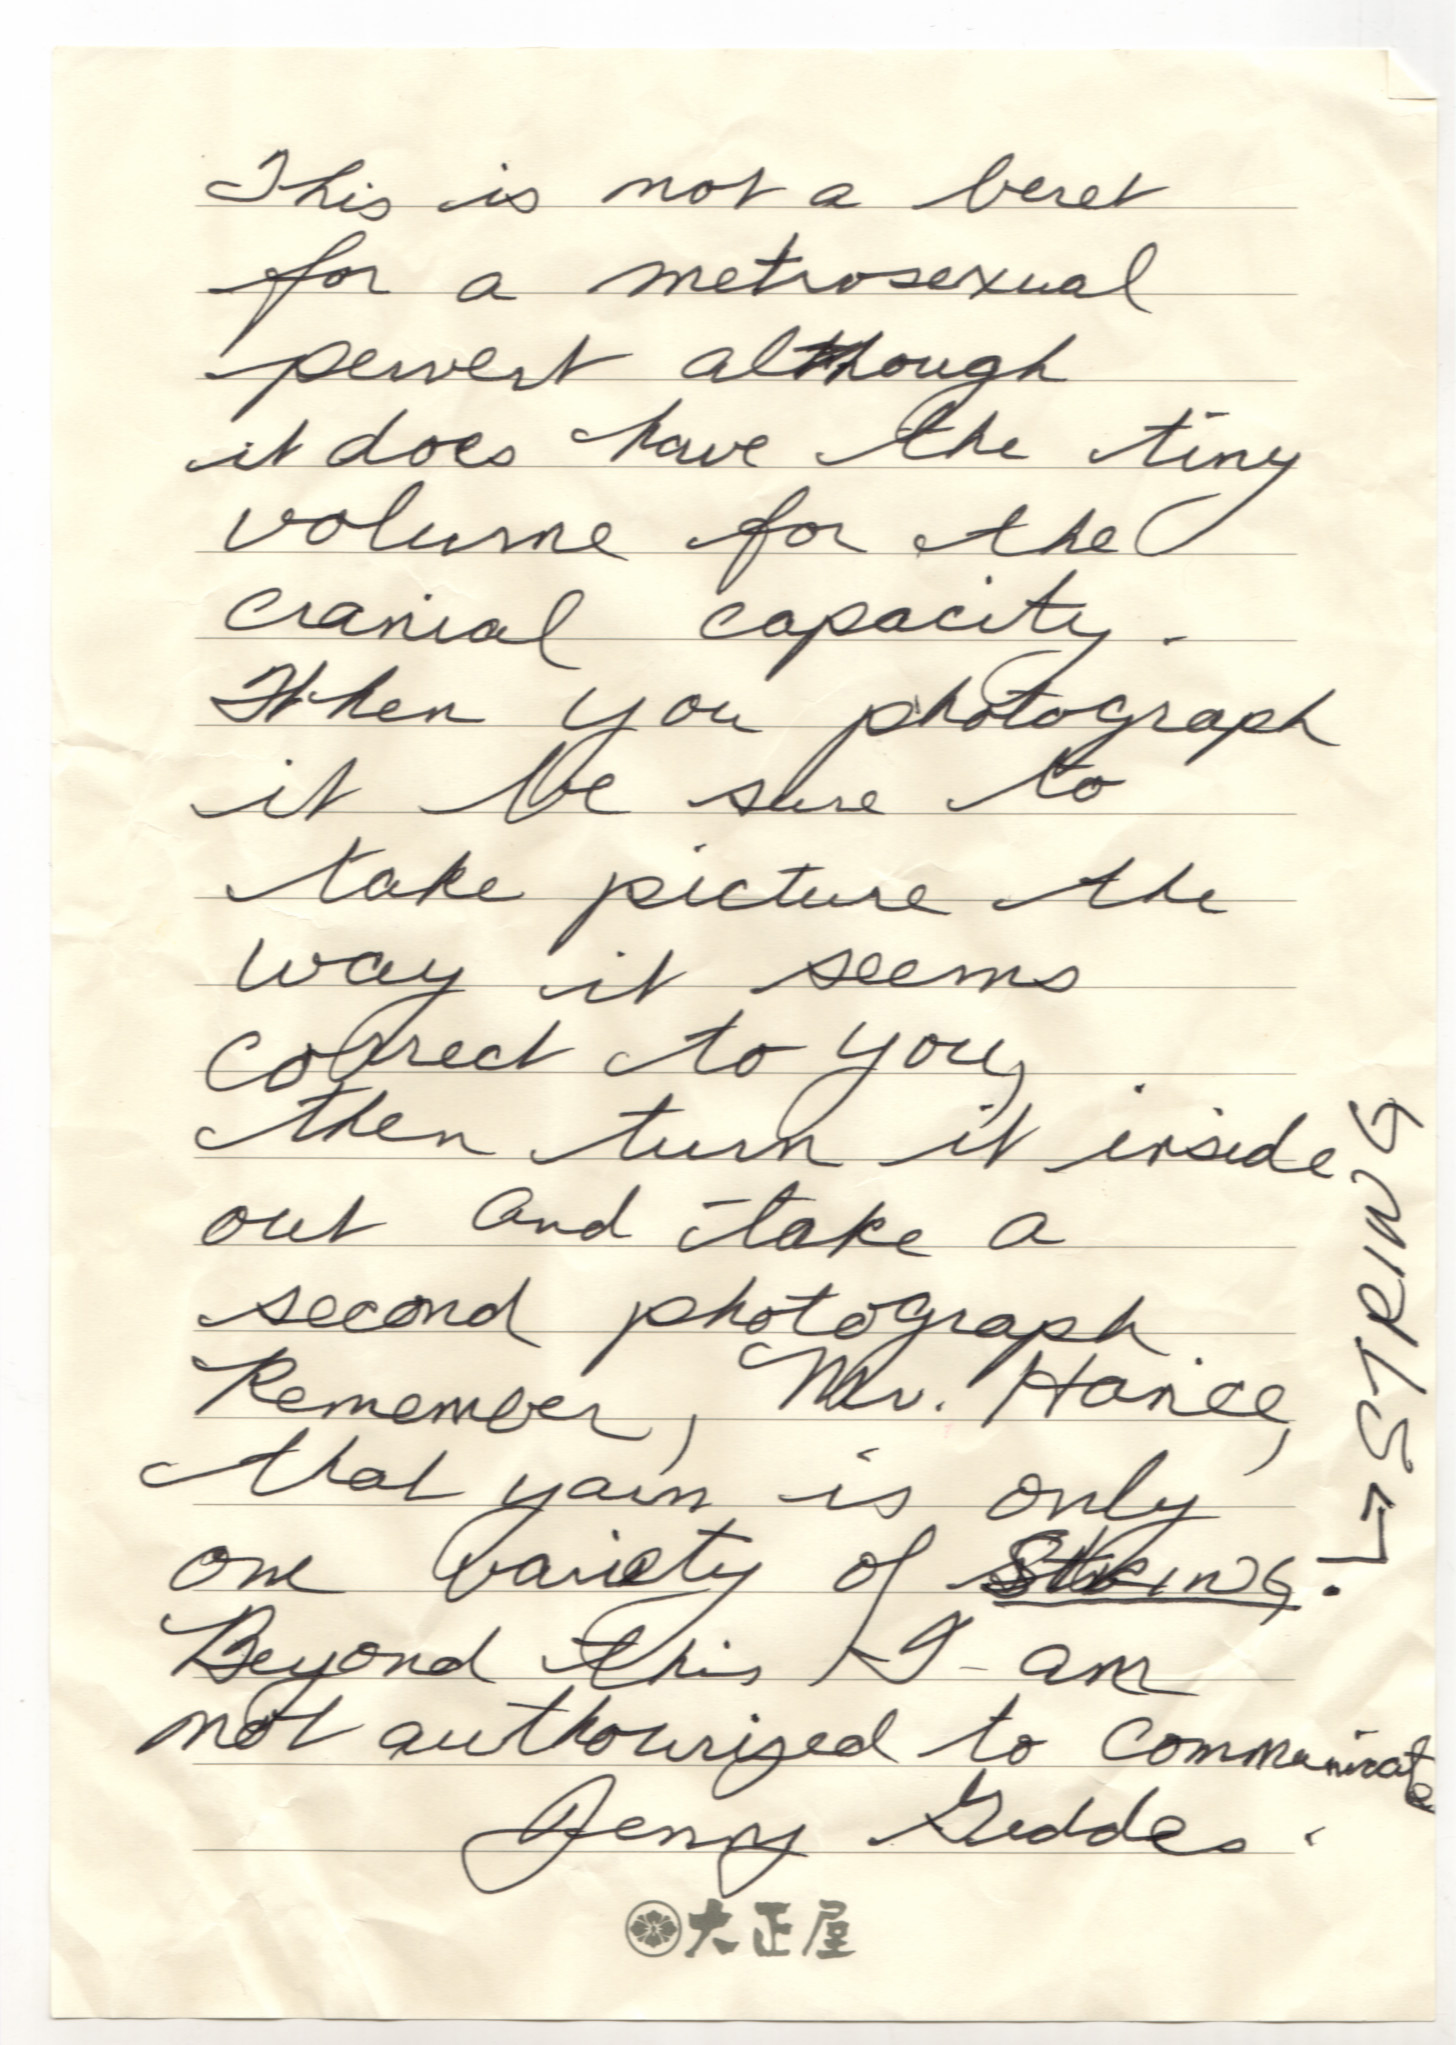 This is not a beret
for a metrosexual
pervert although
it does have the tiny
volume for the
cranial capacity.
When you photograph
it be sure to
take picture the
way it seems
correct to you,
then turn it inside
out and take a
second photograph
Remember, Mr.
that yarn is only
one variety of STRING!
↳ STRING
Beyond this I am
not authourized to communicate
Jenny Geddes.
大正屋